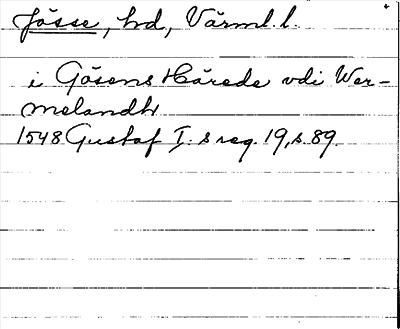 Jösse, hd, Värml. l.
i Gösens Härede vdi Wer-
melandh
1548 Gustaf I: s reg. 19, s. 89.